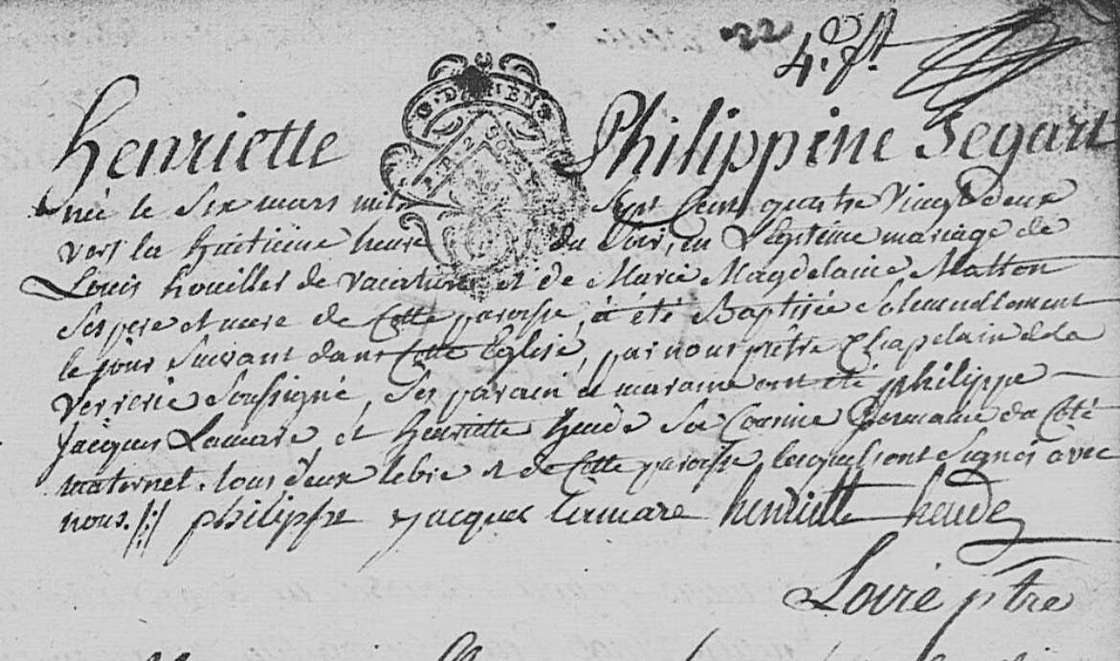 22
4.e f.t
Henriette Philippine Segart
née le Six mars mil Sept Cent quatre Vingt deux
vers la huitième heure du Soir, en Légitime mariage de
Louis houillet de et de Marie Magdelaine Matton
Ses pere et mere de Cette paroisse, à été Baptisée Solemnellement
le jour Suivant dans Cette Eglise, par nous prêtre Chapelain de la
Verrerie Soussigné, Ses parain et maraine ont été philippe
Jacques Lamare, et henriette heude Sa Cousine Germaine du Côté
maternel. tous deux de Cette paroisse lesquels ont Signés avec
nous. philippe jacque lamare henriette heude
Loiré ptre